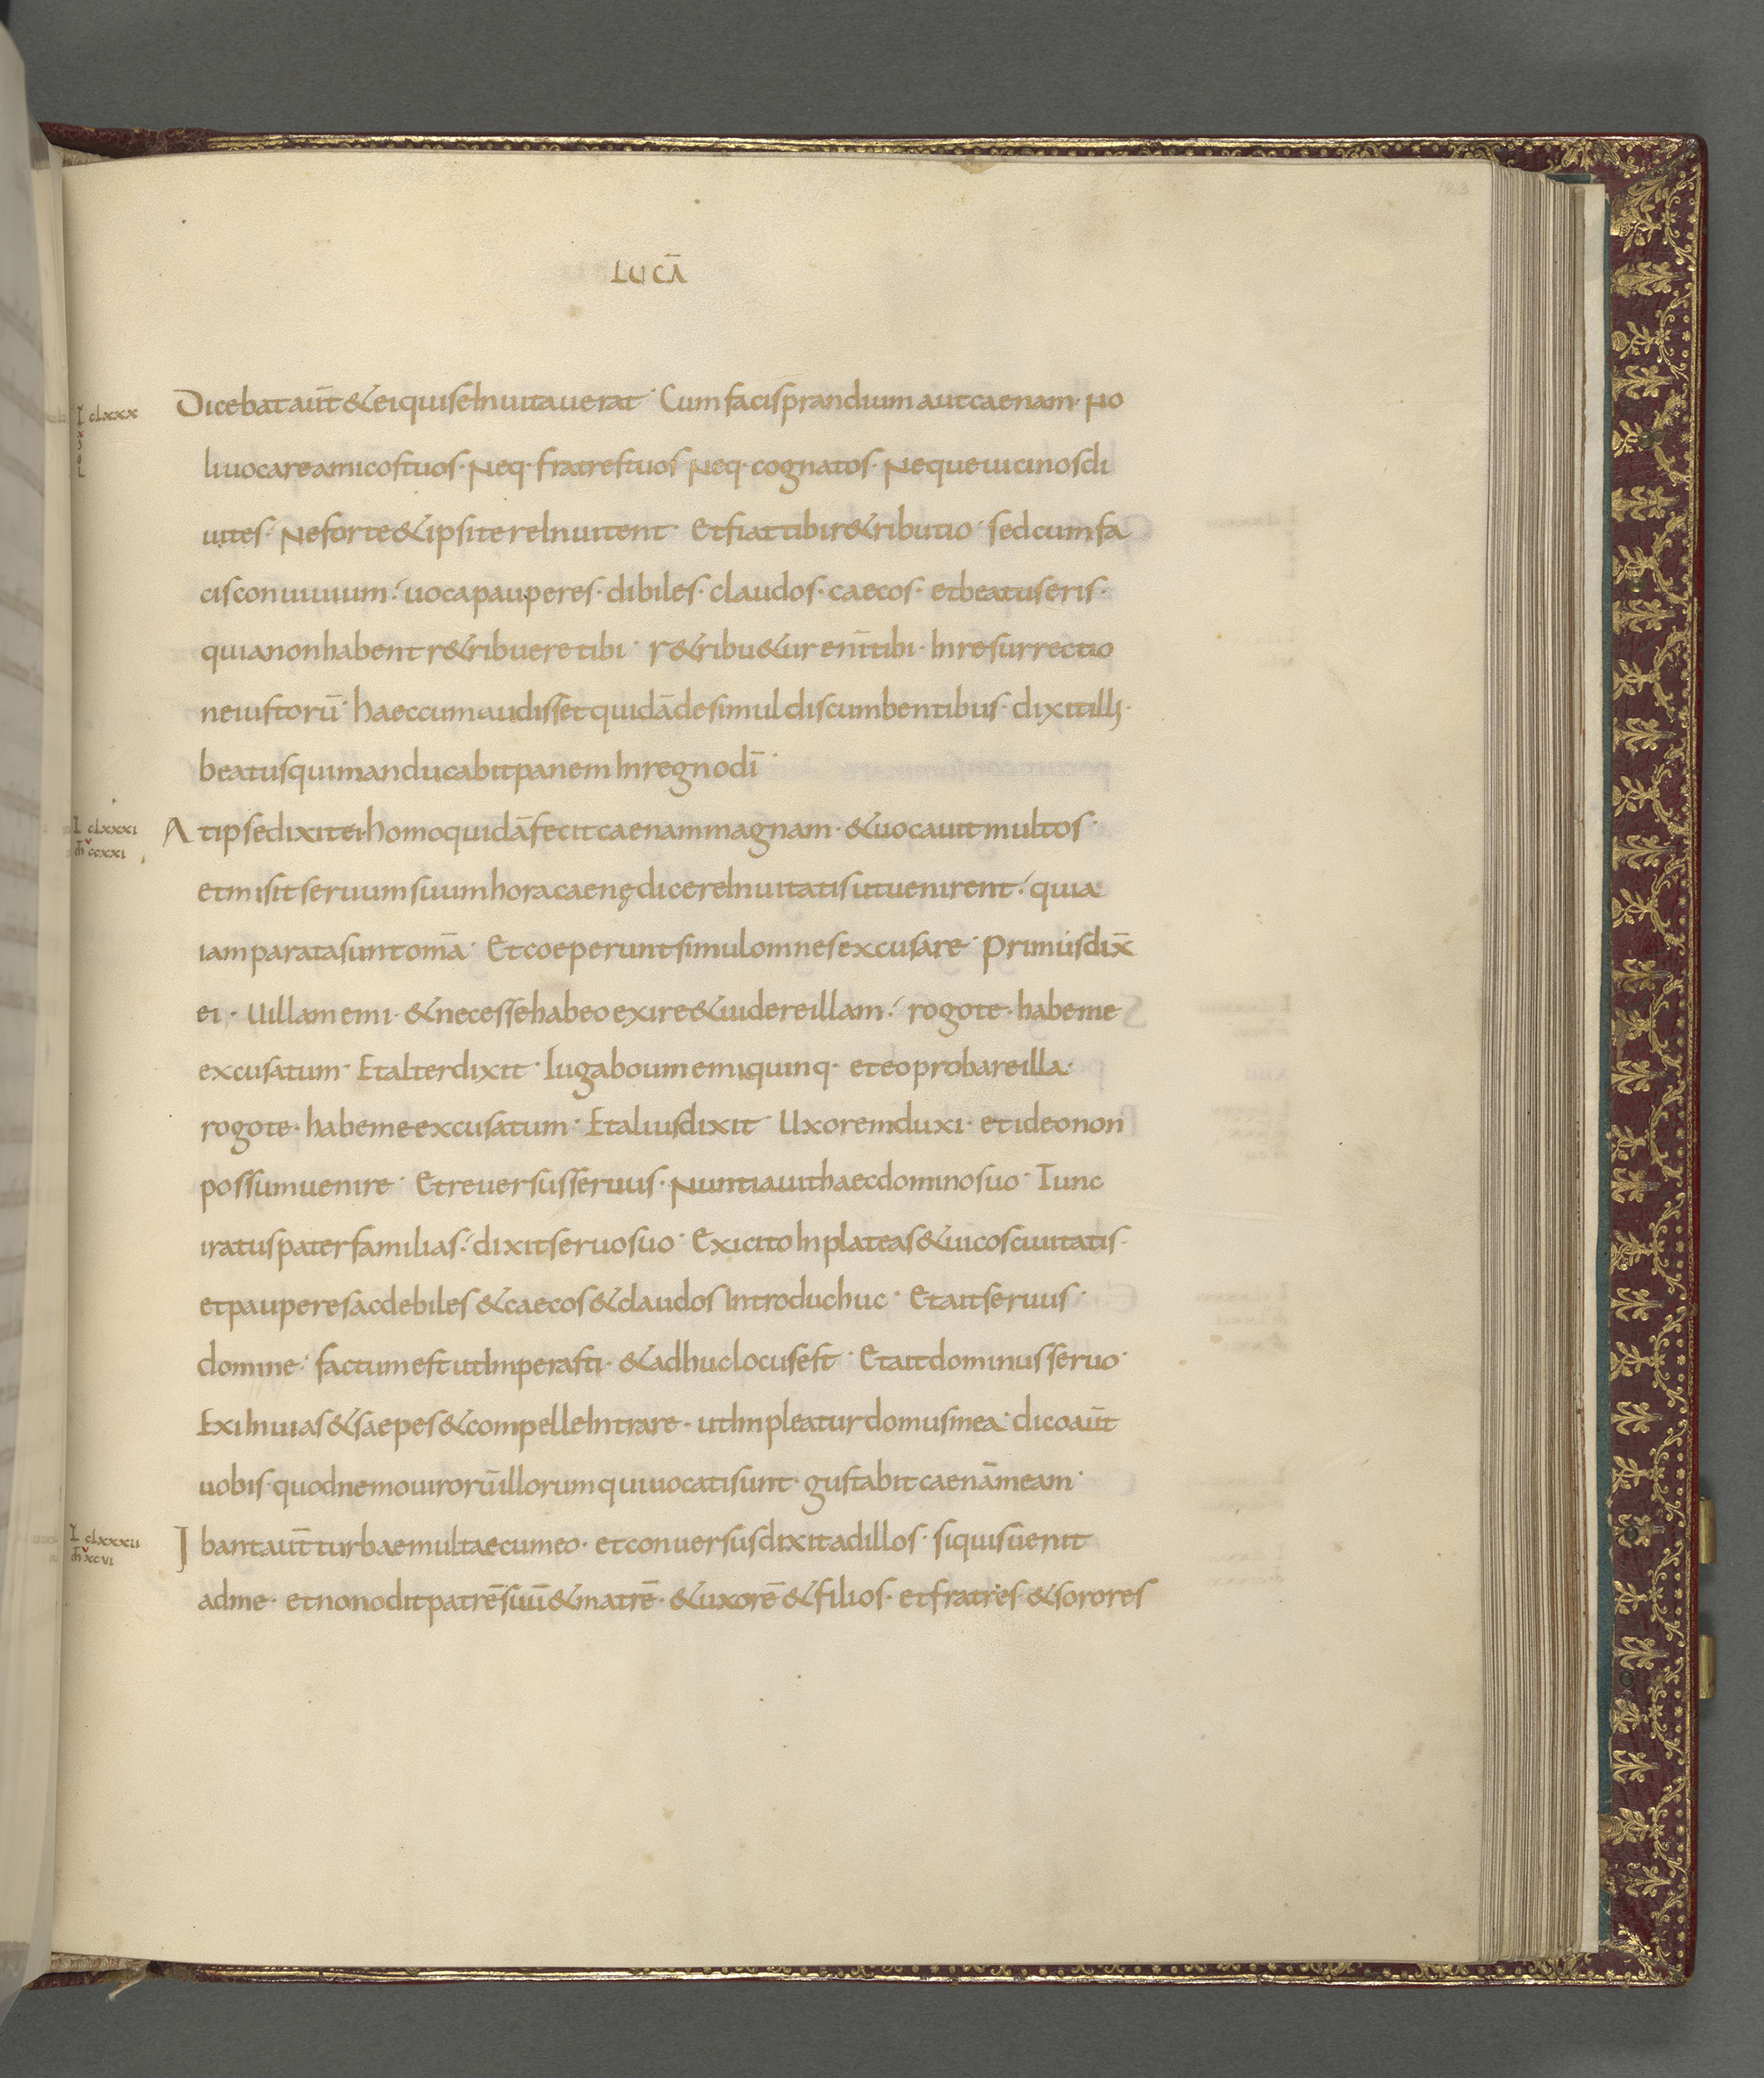 LUCĀ
L clxxx
x
L
Dicebat aūt & ei qui se Inuitauerat· Cum facis prandium aut caenam· No
li uocare amicos tuos· Neq· fratres tuos Neq· cognatos· Neque uicinos di
uites· Ne forte & ipsi te reInuitent· Et fiat tibi r&ributio· sed cum fa
cis conuiuium·́ uoca pauperes· dibiles· claudos· caecos· et beatus eris·
quia non habent r&ribuere tibi· r&ribu&ur eni̅ tibi· In resurrectio
ne iustorū· haec cum audisset quidā de simul discumbentibus· dixit illi·
beatus qui manducabit panem In regno dī·
L clxxxi
m̄ ccxxi
At ipse dixit ei homo quidā fecit caenam magnam· & uocauit multos·
et misit seruum suum hora caenę dicere Inuitatis ut uenirent·́ quia
iam parata sunt om̄a· Et coeperunt simul omnes excusare· Primus dix̄
ei· Uillam emi· & necesse habeo exire & uidere illam·́ rogo te· habe me
excusatum· Et alter dixit· Iuga boum emi quinq· et eo probare illa·
rogo te· habe me excusatum· Et alius dixit· Uxorem duxi· et ideo non
possum uenire· Et reuersus seruus· Nuntiauit haec domino suo· Tunc
iratus pater familias·́ dixit seruo suo· Exi cito In plateas & uicos ciuitatis·
et pauperes ac debiles & caecos & claudos Introduc huc· Et ait seruus·
domine· factum est ut Imperasti· & adhuc locus est· Et ait dominus seruo·
Exi In uias & saepes & compelle Intrare· ut Impleatur domus mea· dico aūt
uobis· quod nemo uirorū illorum qui uocati sunt· gustabit caenā meam·
L clxxxii
m̄ xcvi
Ibant aūt turbae multae cum eo· et conuersus dixit ad illos· si quis uenit
ad me· et non odit patrē suū & matrē· & uxorē & filios· et fratres· & sorores